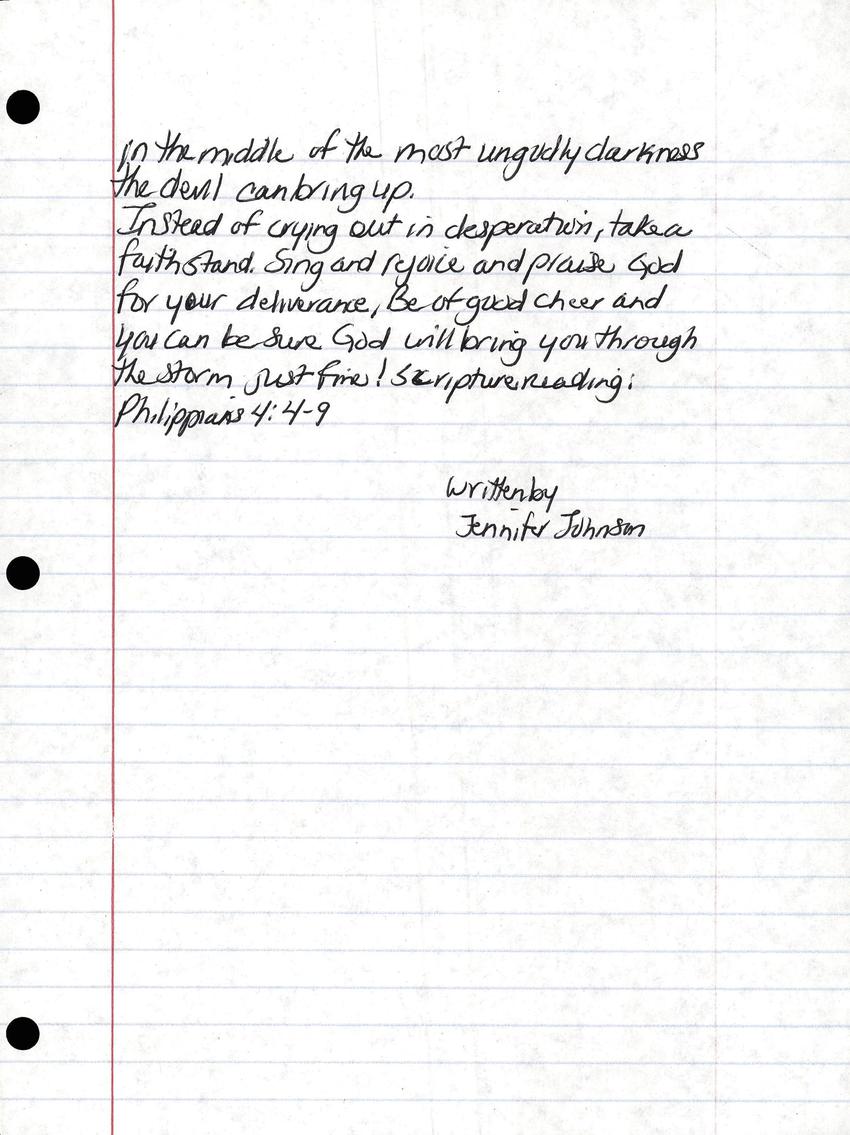 in the middle of the most ungodly darkness
the devil can bring up.
Instead of crying out in desperation, take a
faith stand. Sing and rejoice and praise God
for your deliverance, Be of good cheer and
you can be sure God will bring you through
the storm just fine! Scripture reading:
Philippians 4:4-9
Written by
Jennifer Johnson